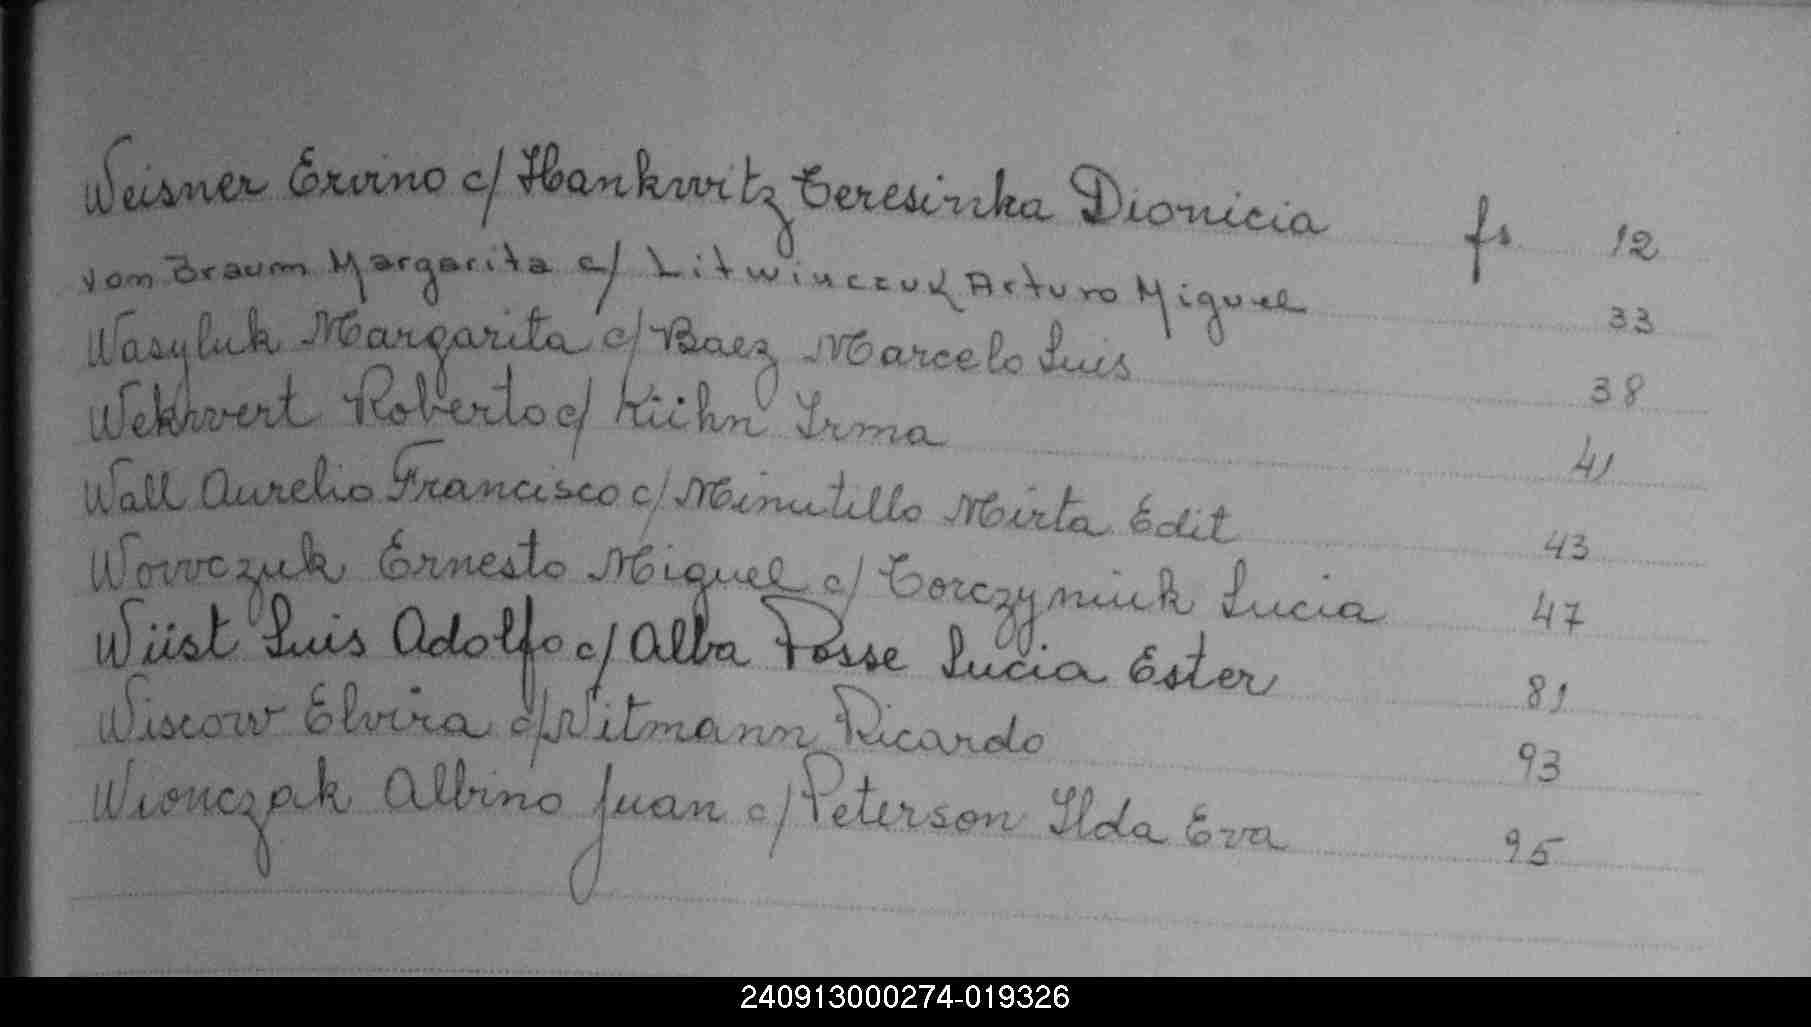 Weisner Ervino c/ Hankwitz Teresinka Dionicia fs 12
von Braum Margarita c/ Litwinczuk Arturo Miguel 33
Wasyluk Margarita c/ Baez Marcelo Luis 38
Wekwert Roberto c/ Kühn Irma 41
Wall Aurelio Francisco c/ Minutillo Mirta Edit 43
Wowczuk Ernesto Miguel c/ Torczyniuk Lucia 47
Wüst Luis Adolfo c/ Alba Posse Lucia Ester 81
Wiscow Elvira c/ Vitmann Ricardo 93
Wionczak Albino Juan c/ Peterson Ilda Eva 95
240913000274-019326